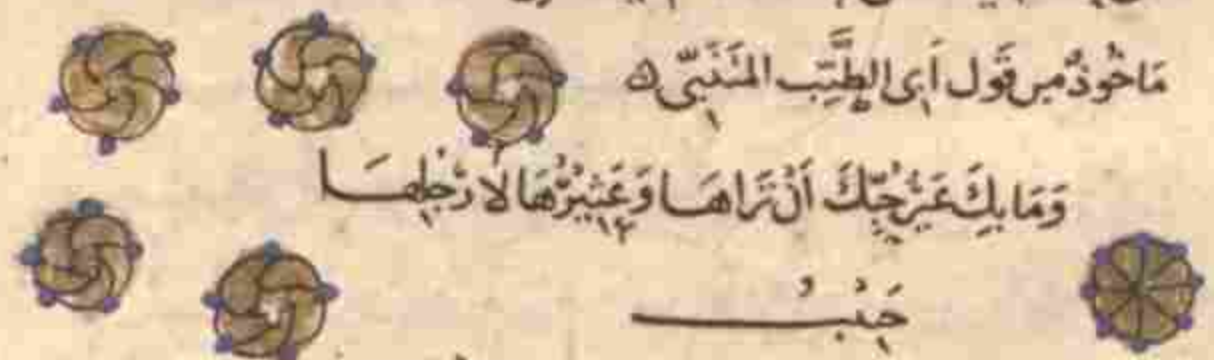 مَاخُوذٌ من قَول أَبى الطَّيِّب المتَنَبّى
وَمَا بِكَ غَيرُ حُبِّكَ أَنْ تَرَاهَا وَعِثْيَرُهَا لأَرْجُلِهَا
جَنِيْبُ